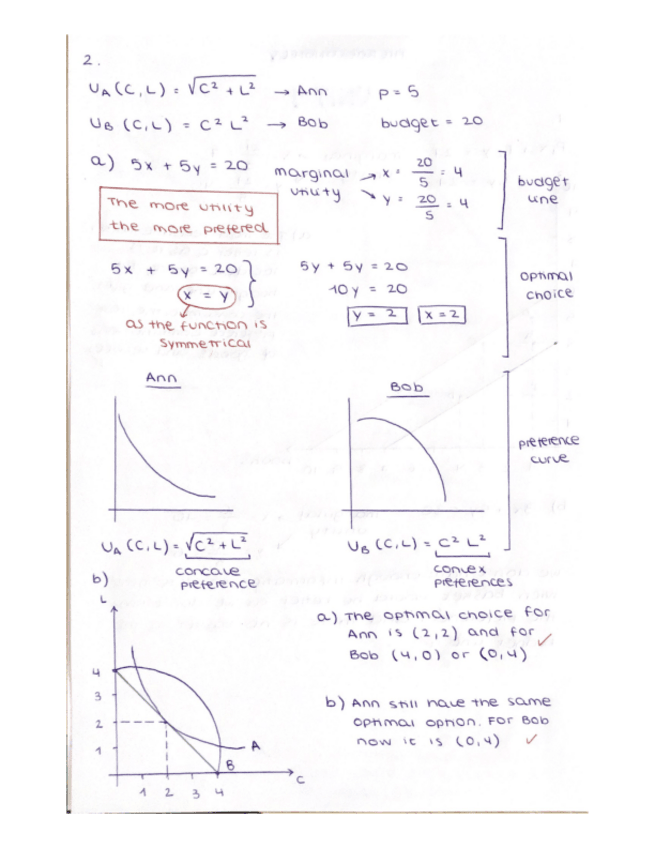 2.
U_A (C,L) = √(C² + L²) → Ann p = 5
U_B (C,L) = C² L² → Bob budget = 20
a) 5x + 5y = 20 marginal utility → x = 20/5 = 4
→ y = 20/5 = 4
budget
line
The more utility
the more prefered
5x + 5y = 20
x = y
as the function is
symmetrical
5y + 5y = 20
10y = 20
y = 2 x = 2
optimal
choice
Ann
Bob
preference
curve
U_A (C,L) = √(C² + L²)
concave
preference
U_B (C,L) = C² L²
convex
preferences
b)
L
4
3
2
1
A
B
C
1 2 3 4
a) The optimal choice for
Ann is (2,2) and for
Bob (4,0) or (0,4) ✓
b) Ann still have the same
optimal option. For Bob
now it is (0,4) ✓